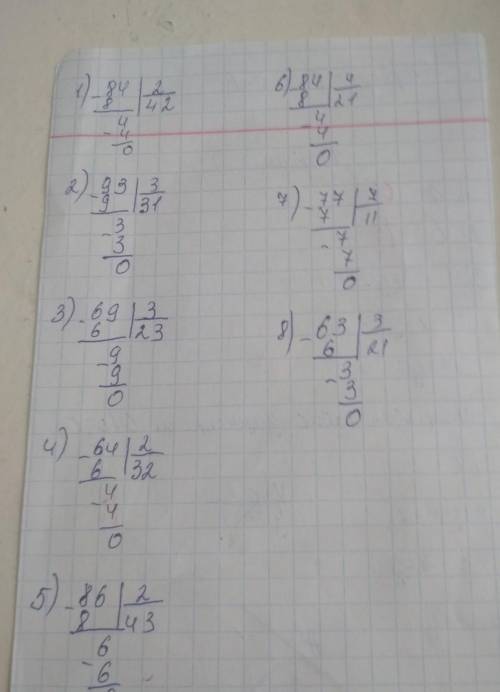 1) -84 | 2
8 | 42
4
-4
0
2) -93 | 3
9 | 31
-3
3
0
3) -69 | 3
6 | 23
-9
9
0
4) -64 | 2
6 | 32
-4
4
0
5) -86 | 2
8 | 43
6
-6
6) -84 | 4
8 | 21
-4
4
0
7) -77 | 7
7 | 11
-7
7
0
8) -63 | 3
6 | 21
-3
3
0